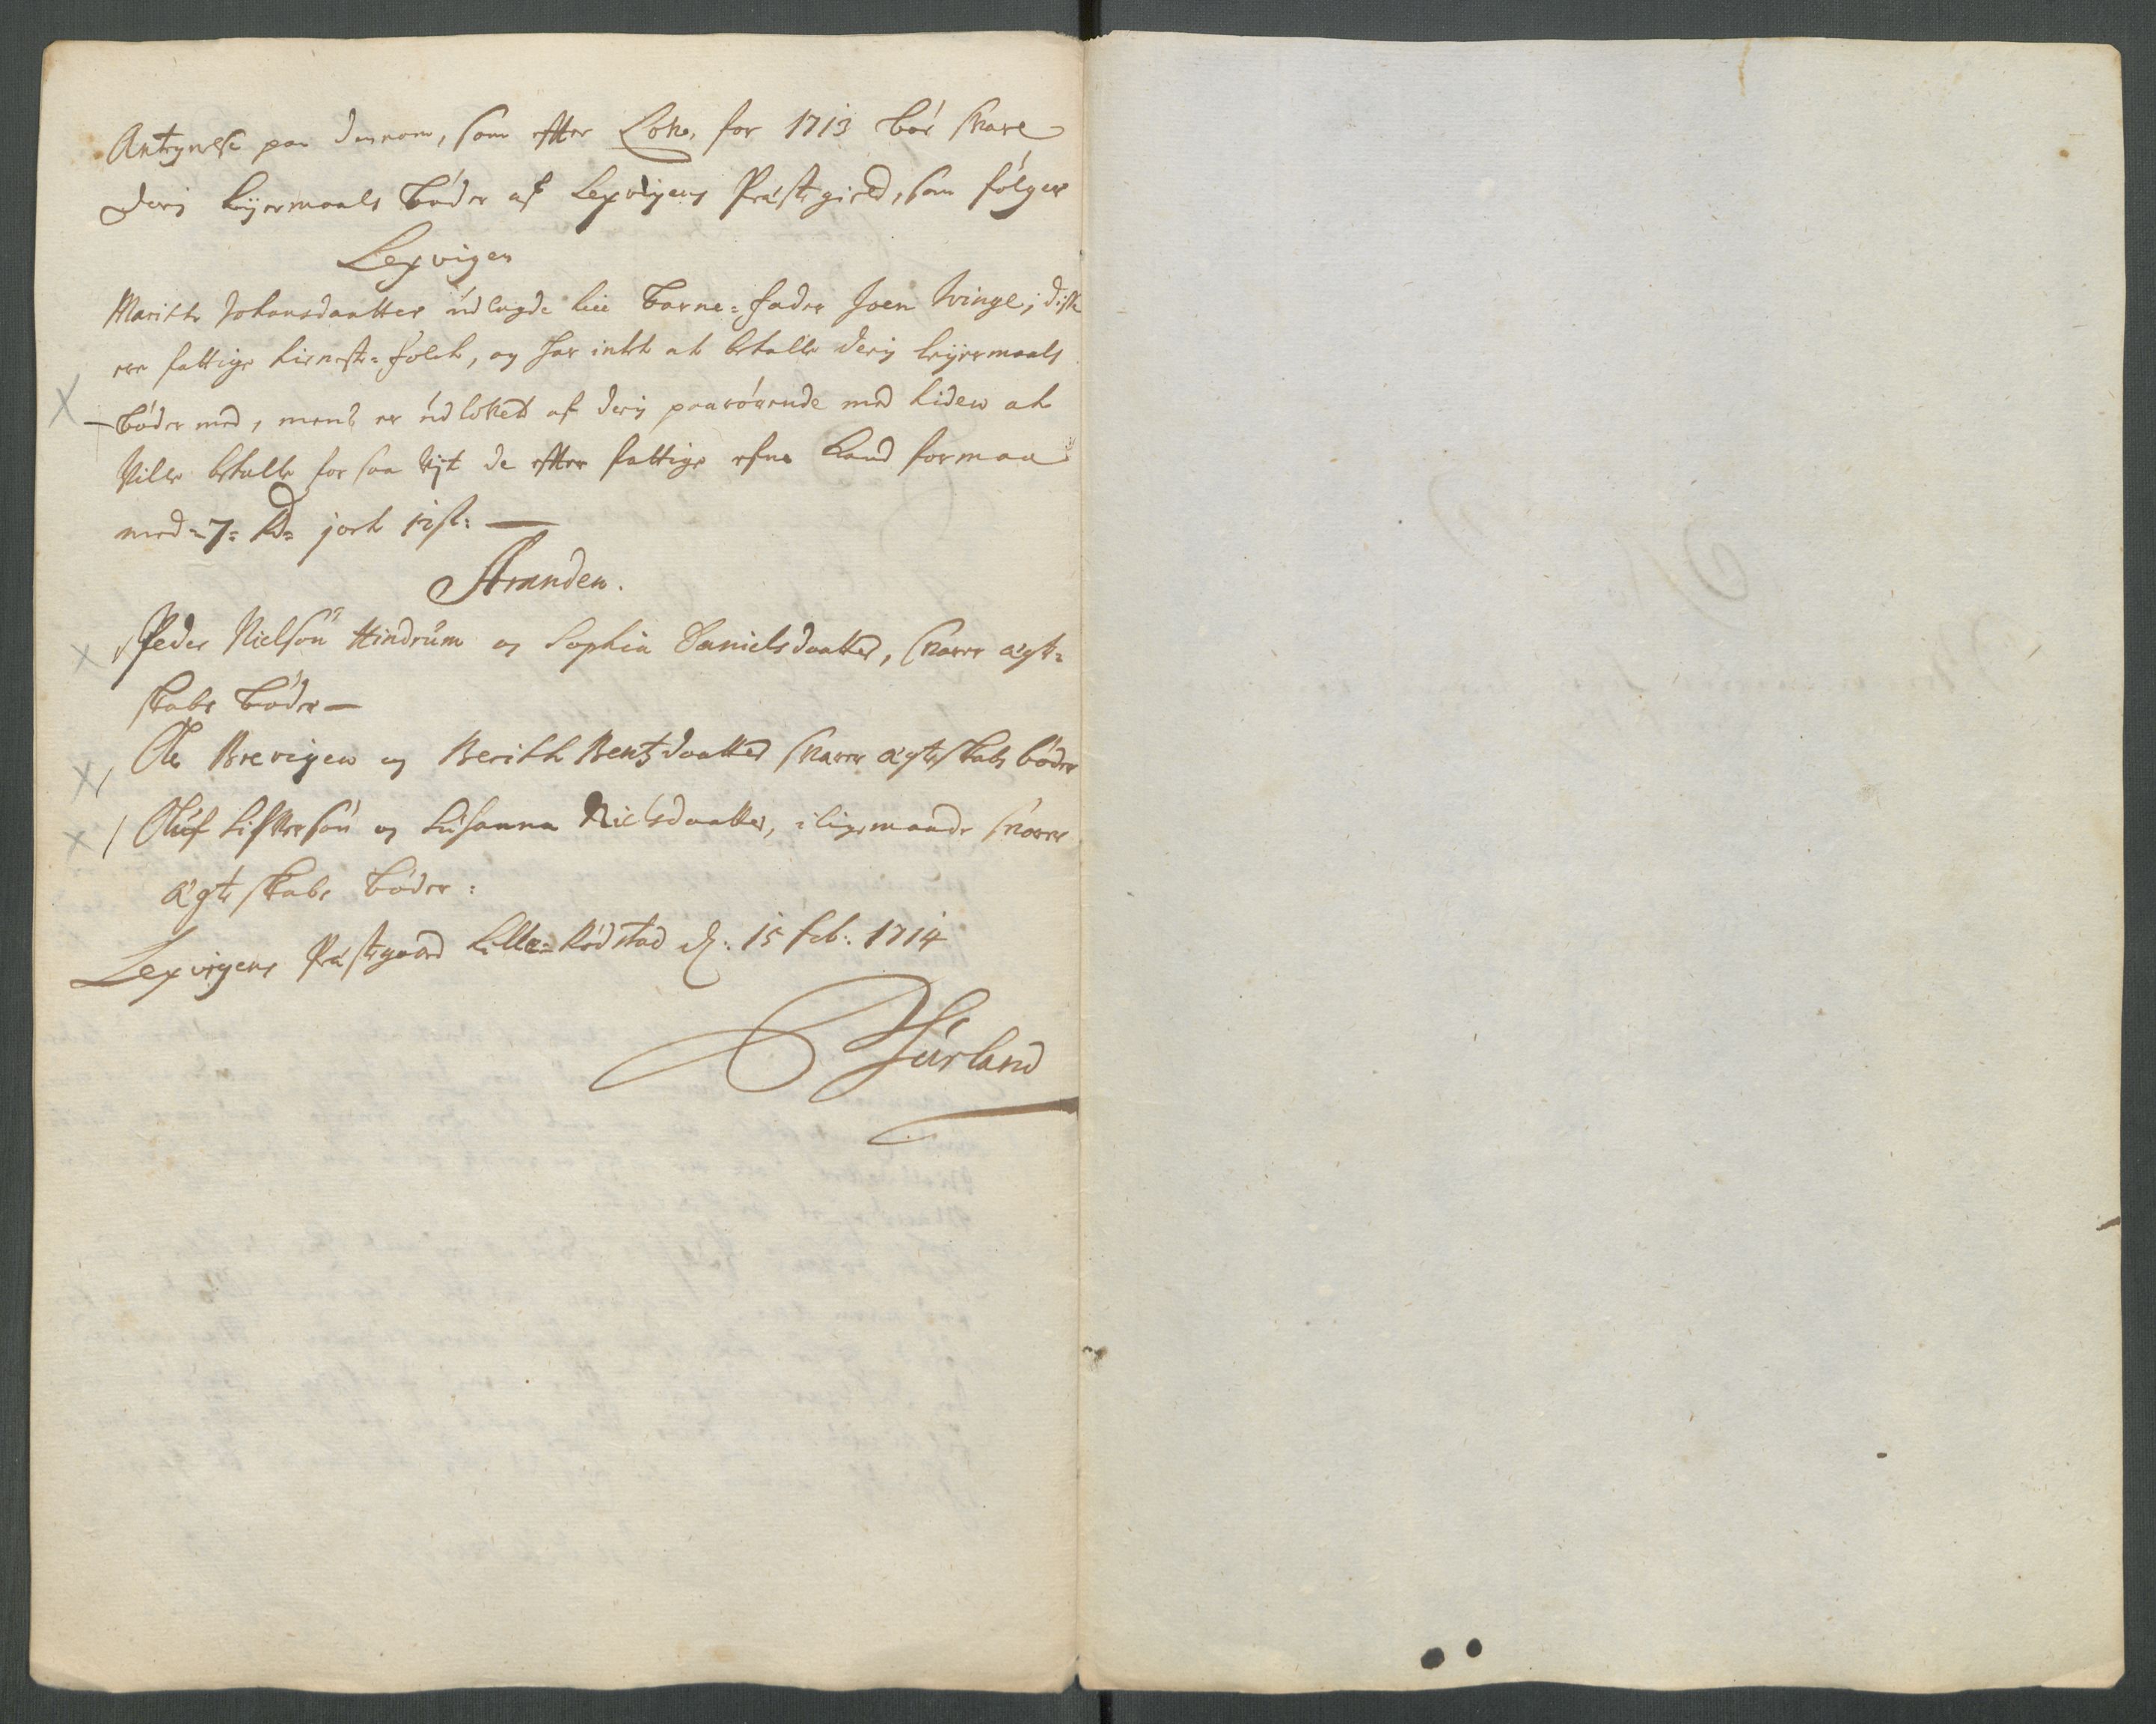 Antegnelse paa dennem, som efter Loven, for 1713 bör svare
deris Leyermaals böder af Lexvigens Præstegield, som fölger
Lexvigen
Marithe Johansdaatter udlagde til Barne=fader Joen Winge; disse
ere fattige tieneste=folch, og har intet at betalle deris leyermaals
böder med, mens er udlovet af deris paarörende med tiden at
Ville betalle for saa vijt de efter fattige efne kand formaa
med=7= Rd= 12 sk: —
Stranden.
Peder Nielsön Hindrum og Sophia Danielsdaatter, svarer ægte=
skabs böder —
Ole Brevigen og Berith Bentzdaatter svarer ægteskabs böder
Oluf Sifversön og Susanna Nielsdaatter, iligemaade svarer
ægteskabs böder:
Lexvigens Præstegaard Lille=Rödstad d: 15 feb: 1714
Hurland